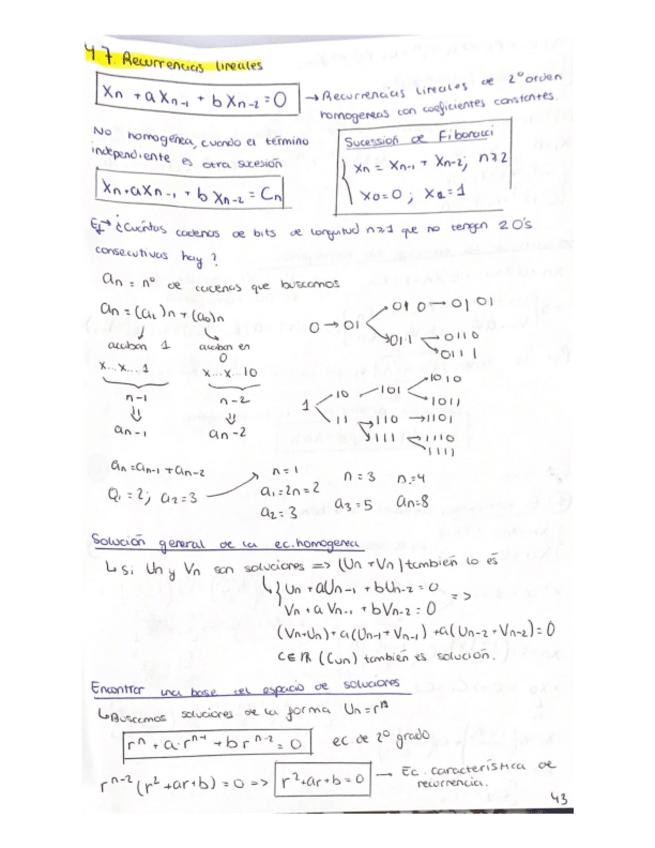 4.7. Recurrencias lineales
Xn + a Xn-1 + b Xn-2 = 0 → Recurrencias lineales de 2º orden
homogeneas con coeficientes constantes.
No homogénea, cuando el término
independiente es otra sucesión
Xn + a Xn-1 + b Xn-2 = Cn
Sucessión de Fibonacci
Xn = Xn-1 + Xn-2; n≥2
X0=0; X1=1
Ej→ ¿Cuántas cadenas de bits de longitud n≥1 que no tengan 2 0's
consecutivos hay?
an = nº de cadenas que buscamos
an = (a1)n + (a0)n
acaban 1 acaban en 0
x...x...1 x...x...10
n-1 n-2
⇓ ⇓
an-1 an-2
0 → 01
010 → 0101
011
0110
0111
1
10
101
1010
1011
11
110 → 1101
111
1110
1111
an = an-1 + an-2
a1 = 2; a2 = 3
n=1
a1 = 2n = 2
a2 = 3
n=3
a3 = 5
n=4
an=8
Solución general de la ec. homogenea
↳ Si Un y Vn son soluciones => (Un + Vn) también lo es
Un + aUn-1 + bUn-2 = 0
Vn + a Vn-1 + bVn-2 = 0
=>
(Vn+Un) + a(Un-1 + Vn-1) + a(Un-2 + Vn-2) = 0
C∈R (Cun) también es solución.
Encontrar una base del espacio de soluciones
↳ Buscamos soluciones de la forma Un = r^n
r^n + a·r^n-1 + b r^n-2 = 0 ec. de 2º grado
r^n-2 (r^2 + ar + b) = 0 => r^2 + ar + b = 0 → Ec. característica de
recurrencia.
43